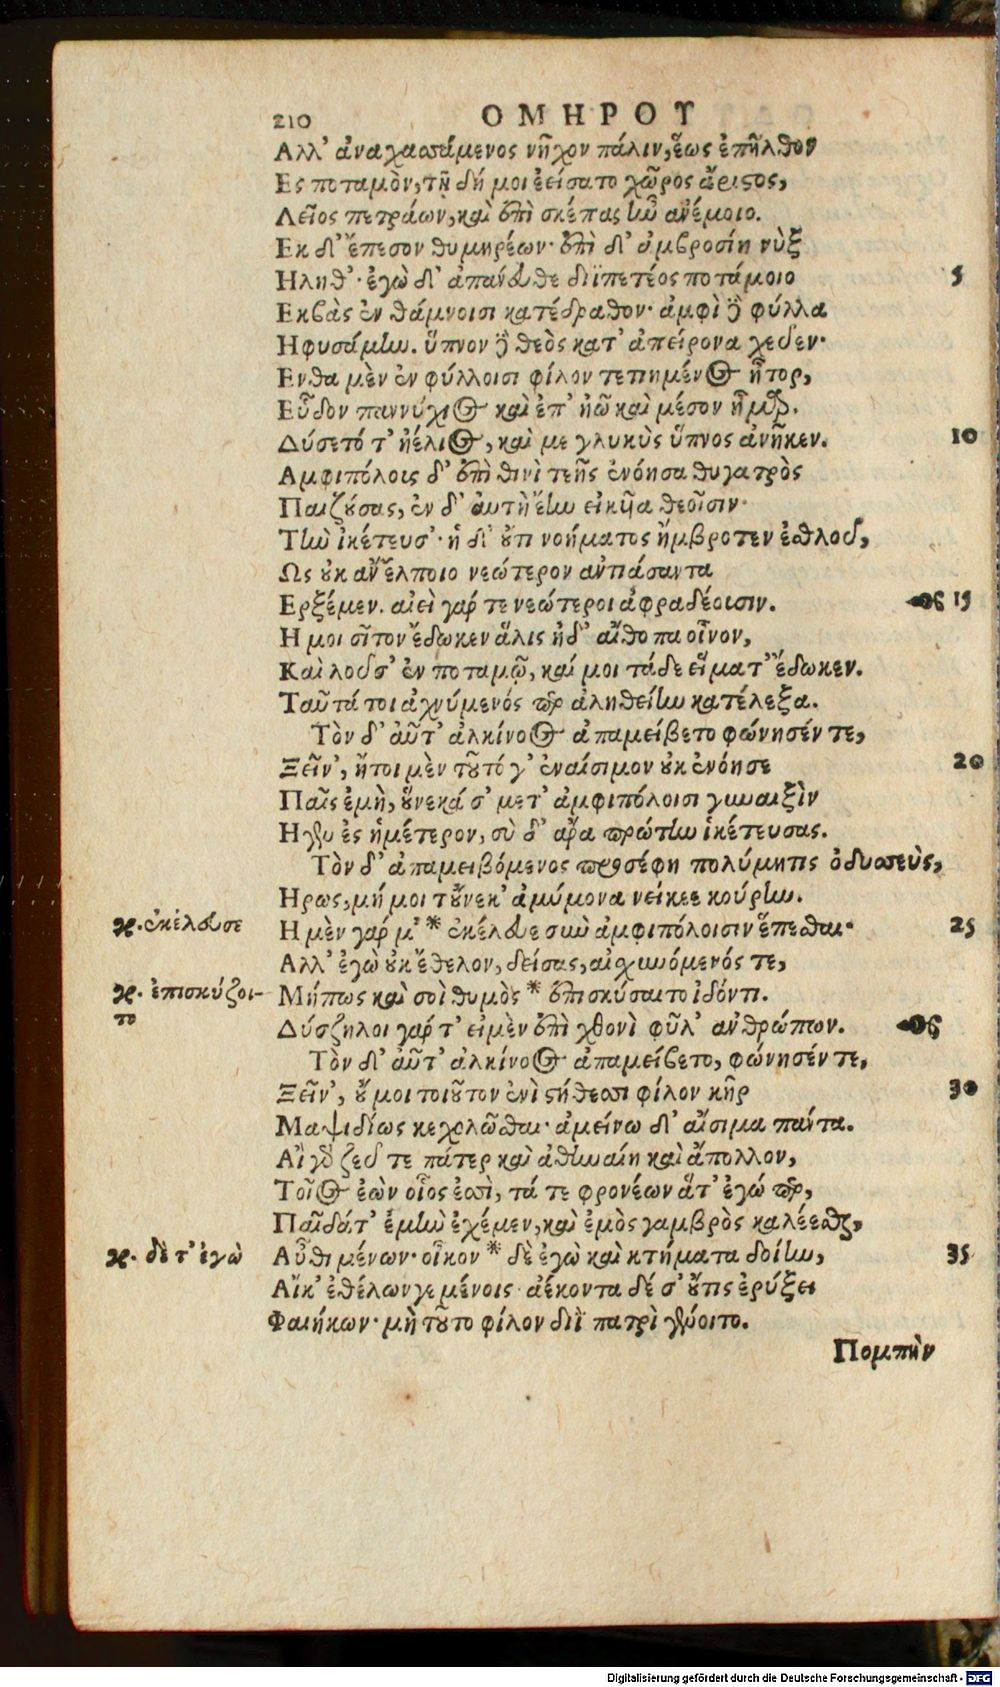 210 ΟΜΗΡΟΥ
Αλλ' ἀναχασσάμενος νῆχον πάλιν, ἕως ἐπῆλθον
Ες ποταμὸν, τῇ δή μοι ἐείσατο χῶρος ἄριστος,
Λεῖος πετράων, καὶ ἐπὶ σκέπας ἦν ἀνέμοιο.
Εκ δ' ἔπεσον θυμηρέων· ἐπὶ δ' ἀμβροσίη νὺξ
Ηληθ'· ἐγὼ δ' ἀπάνευθε διϊπετέος ποτάμοιο 5
Εκβὰς ἐν θάμνοισι κατέδραθον· ἀμφὶ δὲ φύλλα
Ηφυσάμην. ὕπνον δὲ θεὸς κατ' ἀπείρονα χεῦεν·
Ενθα μὲν ἐν φύλλοισι φίλον τετιημένος ἦτορ,
Εὗδον παννύχιος καὶ ἐπ' ἠῶ καὶ μέσον ἦμαρ.
Δύσετό τ' ἠέλιος, καὶ με γλυκὺς ὕπνος ἀνῆκεν. 10
Αμφιπόλοις δ' ἐπὶ θινὶ τεῆς ἐνόησα θυγατρὸς
Παιζούσας, ἐν δ' αὐτὴ ἔην εἰκυῖα θεοῖσιν·
Τὴν ἱκέτευσ'· ἡ δ' οὔτι νοήματος ἤμβροτεν ἐσθλοῦ,
Ως οὐκ ἂν ἔλποιο νεώτερον ἀντιάσαντα
Ερξέμεν. αἰεὶ γάρ τε νεώτεροι ἀφραδέουσιν. 15
Η μοι σῖτον ἔδωκεν ἅλις ἠδ' αἴθοπα οἶνον,
Καὶ λοῦσ' ἐν ποταμῷ, καί μοι τάδε εἵματ' ἔδωκεν.
Ταῦτά τοι ἀχνύμενός περ ἀληθείην κατέλεξα.
Τὸν δ' αὖτ' ἀλκίνοος ἀπαμείβετο φώνησέν τε,
Ξεῖν', ἤτοι μὲν τοῦτό γ' ἐναίσιμον οὐκ ἐνόησε 20
Παῖς ἐμὴ, οὕνεκά σ' μετ' ἀμφιπόλοισι γυναιξὶν
Ηγεν ἐς ἡμέτερον, σὺ δ' ἄρα πρώτην ἱκέτευσας.
Τὸν δ' ἀπαμειβόμενος προσέφη πολύμητις ὀδυσσεὺς,
Ηρως, μή μοι τοὔνεκ' ἀμύμονα νείκεε κούρην.
ϗ. ἐκέλευσε Η μὲν γάρ μ' * ἐκέλευε σὺν ἀμφιπόλοισιν ἕπεσθαι· 25
Αλλ' ἐγὼ οὐκ ἔθελον, δείσας, αἰσχυνόμενός τε,
ϗ. ἐπισκύζοι- Μήπως καὶ σοὶ θυμὸς * ἐπισκύσαιτο ἰδόντι.
το Δύσζηλοι γάρ τ' εἰμὲν ἐπὶ χθονὶ φῦλ' ἀνθρώπων.
Τὸν δ' αὖτ' ἀλκίνοος ἀπαμείβετο, φώνησέν τε,
Ξεῖν', οὔ μοι τοιοῦτον ἐνὶ στήθεσσι φίλον κῆρ 30
Μαψιδίως κεχολῶσθαι· ἀμείνω δ' αἴσιμα πάντα.
Αἲ γὰρ ζεῦ τε πάτερ καὶ ἀθηναίη καὶ ἄπολλον,
Τοῖος ἐὼν οἷος ἐσσὶ, τά τε φρονέων ἅτ' ἐγώ περ,
Παῖδά τ' ἐμὴν ἐχέμεν, καὶ ἐμὸς γαμβρὸς καλέεσθαι,
ϗ. δὲ τ' ἐγὼ Αὖθι μένων· οἶκον * δὲ ἐγὼ καὶ κτήματα δοίην, 35
Αἴκ' ἐθέλων γε μένοις· ἀέκοντα δέ σ' οὔτις ἐρύξει
Φαιήκων· μὴ τοῦτο φίλον διῒ πατρὶ γένοιτο.
Πομπὴν
Digitalisierung gefördert durch die Deutsche Forschungsgemeinschaft - DFG